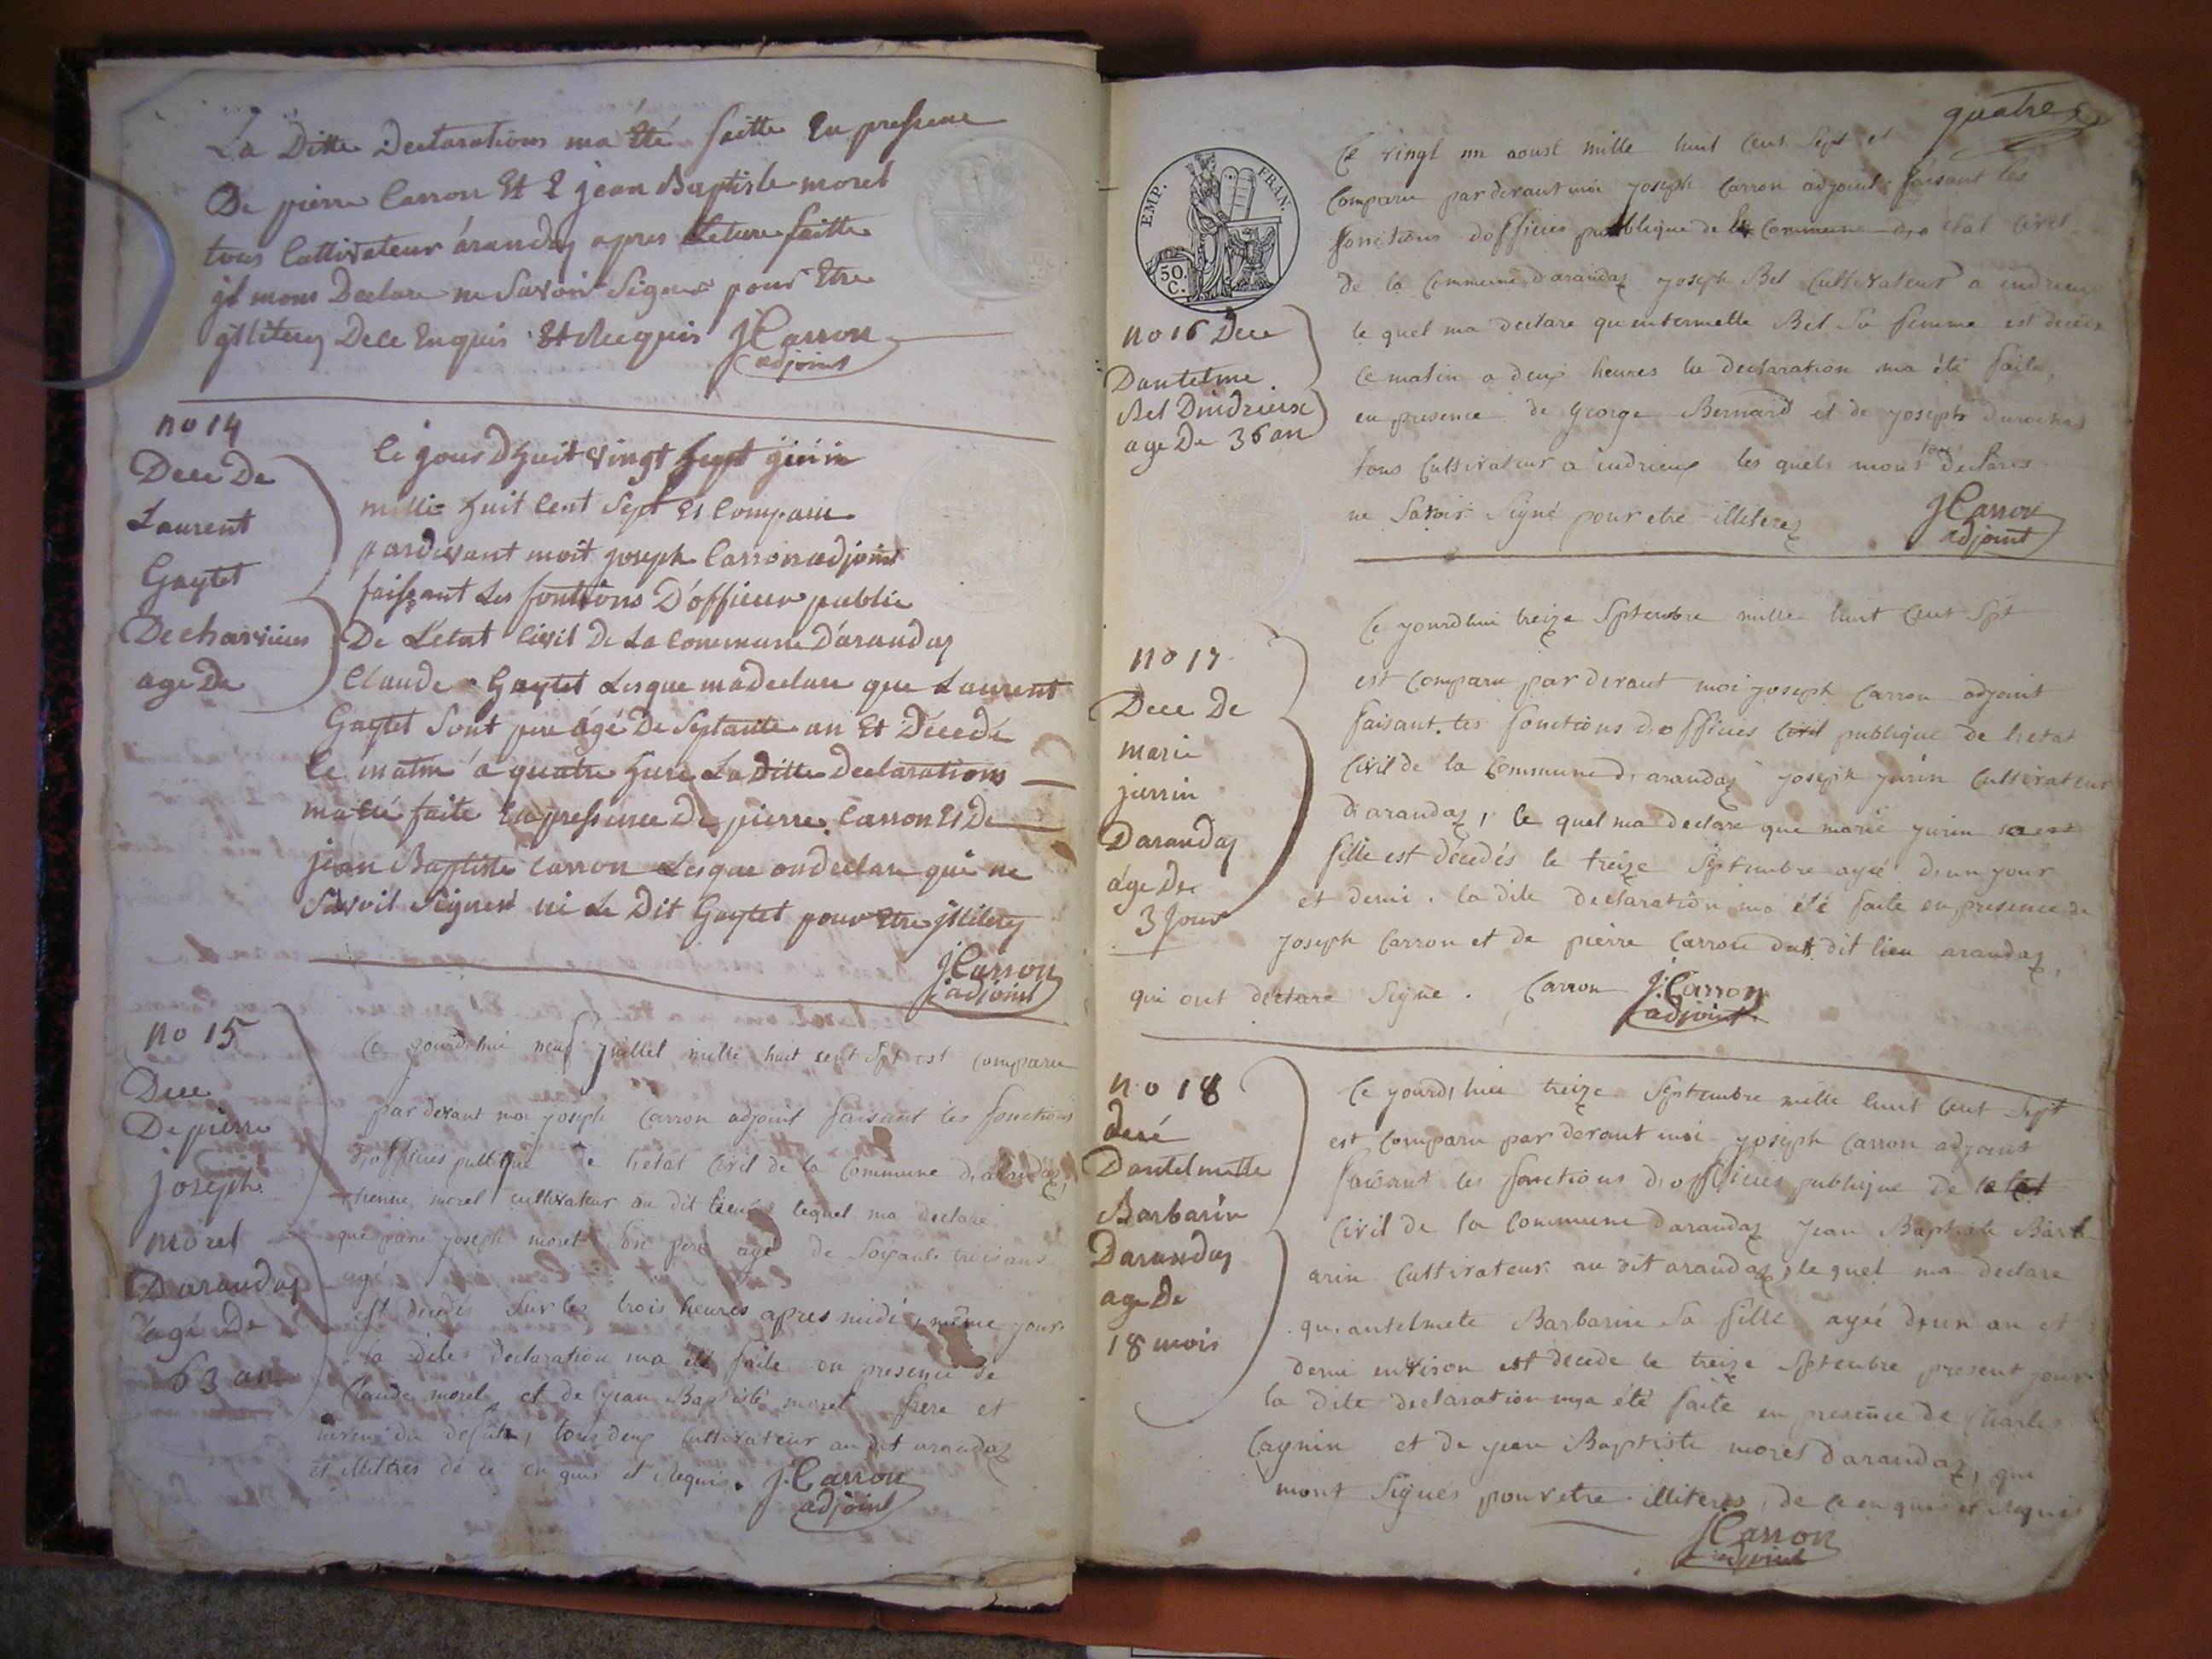 La Ditte Declarations ma été faitte En pressence
De pierre Carron Et 2 jean Baptiste morel
tous Cultivateur árandas apres Leture faitte
jl mons Declare ne Savoir Signer pour Etre
jllitery Dece Enquis Et Requis JCarron
adjoint
no 14
Dece De
Laurent
Gaytet
Decharvieus
age De
le jour Dhuit vingt sept juin
mille huit Cent Sept Es Comparu
pardevant moit joseph Carron adjoint
faissant Les fontions D'officier public
De L'etat Civil De La Commune D'arandas
Claude Gaytet Lesque madeclare que Laurent
Gaytet Sont pere ágé De Septante an Et Décedé
le matin á quatre hure La Ditte Declarations
ma été faite En pressence De pierre Carron Et De
jean Baptiste Carron Lesque ondeclare que ne
Savoit Signer ni Le Dit Gaytet pour Etre jllitery
JCarron
adjoint
no 15
Dece
De pierre
joseph
morel
Darandas
agé De
63 an
Ce jourdhui neuf juillet mille huit cent spt est comparu
par devant moi joseph Carron adjoint faisant les fonctions
d'officiés publique de l'etat Civil de la Commune d'arandaz,
etienne morel cultivateur au dit lieu lequel ma declare
que piere joseph morel son pere agé de soixante trois ans
agé
est décedés sur les trois heures apres midi, même jour
la dite declaration ma été faite en presence de
Claude morel et de jean Baptiste morel frere et
neveu du defunt, tous deux Cultivateur au dit arandaz
et illitéres de ce en quis et Requis. J.Carron
adjoint
quatre
EMP. FRAN.
50 C.
no 16 Dece
Dantelme
Bel Dindrieux
age De 36 an
Ce vingt un aoust mille huit Cent Sept et
Comparu par devant moi joseph Carron adjoint faisant les
fonctions dofficies publique de la Commune de etat Civil
de la Commune d'arandaz joseph Bel Cultivateur a indrieu
le quel ma declare quentermette Bel Sa femme est decede
Ce matin a deux heures la declaration ma été faite,
en presence de George Bernard et de joseph
tous Cultivateur a indrieux les quels mont tous declares
ne Savoir Signé pour etre illiteres
JCarron
adjoint
no 17
Dece De
marie
jurrin
Darandas
áge De
3 Jour
Ce jourdhui treize Septembre mille huit Cent Spt
est Comparu par devant moi joseph Carron adjoint
faisant les fonctions dofficies Civil publique de l'etat
Civil de la Commune d'arandaz joseph jurin Cultivateur
d'arandaz, le quel ma declare que marie jurin
fille est décedés le treize Septembre agéé d'un jour
et demi. la dite declaration ma été faite en presence de
joseph Carron et de pierre Carron dit lieu arandaz,
qui ont declare Signe. Carron J.Carron
adjoint
no 18
decé
Dantelmette
Barbarin
Darandas
age De
18 mois
Ce jourd'hui treize Septembre mille huit Cent Sept
est Comparu par devant moi joseph Carron adjoint
faisant les fonctions d'officiés publique de
Civil de la Commune darandaz jean Baptiste Barb
arin Cultivateur au dit arandaz, le quel ma declare
qu'antelmete Barbarin Sa fille agéé d'un an et
demi environ est decede le treize Septembre present jour
la dite declaration mya été faite en presence de Charles
Cagnin et de jean Baptiste morel darandaz, que
mont Signés pour etre illiteres, de Ce en quis et Requis
JCarron
adjoint